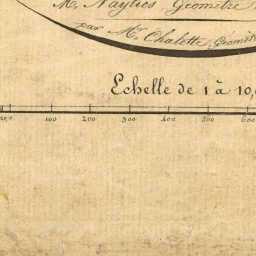 Mr. Naylies Géomètre
par Mr. Chalette, Géomèt
Echelle de 1 à 10,
100 200 300 400 500 600